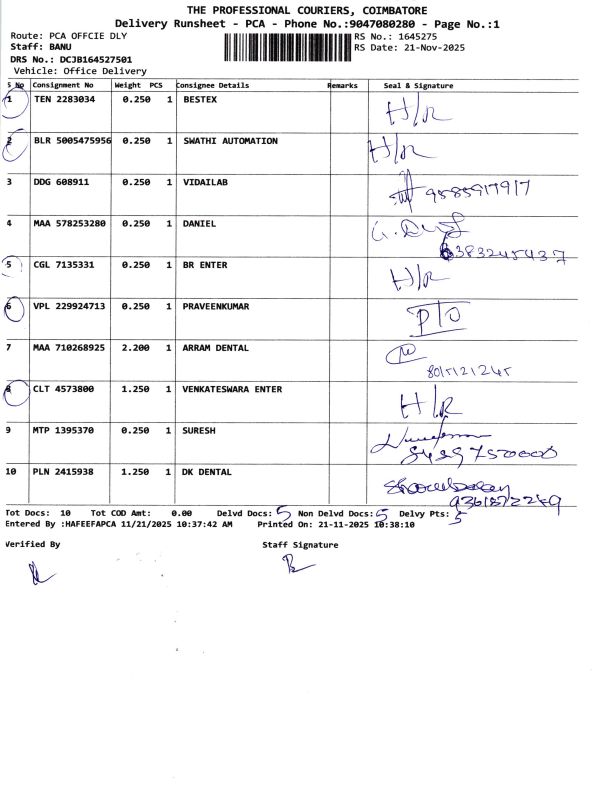 THE PROFESSIONAL COURIERS, COIMBATORE
Delivery Runsheet - PCA - Phone No.:9047080280 - Page No.:1
Route: PCA OFFCIE DLY RS No.: 1645275
Staff: BANU RS Date: 21-Nov-2025
DRS No.: DCJB164527501
Vehicle: Office Delivery
S No Consignment No Weight PCS Consignee Details Remarks Seal & Signature
1 TEN 2283034 0.250 1 BESTEX H/R
2 BLR 5005475956 0.250 1 SWATHI AUTOMATION H/R
3 DDG 608911 0.250 1 VIDAILAB 9585917917
4 MAA 578253280 0.250 1 DANIEL
6383245437
5 CGL 7135331 0.250 1 BR ENTER H/R
6 VPL 229924713 0.250 1 PRAVEENKUMAR P/O
7 MAA 710268925 2.200 1 ARRAM DENTAL
8015121245
8 CLT 4573800 1.250 1 VENKATESWARA ENTER H/R
9 MTP 1395370 0.250 1 SURESH
10 PLN 2415938 1.250 1 DK DENTAL
Tot Docs: 10 Tot COD Amt: 0.00 Delvd Docs: 5 Non Delvd Docs: 5 Delvy Pts: 5
Entered By :HAFEEFAPCA 11/21/2025 10:37:42 AM Printed On: 21-11-2025 10:38:10
Verified By Staff Signature